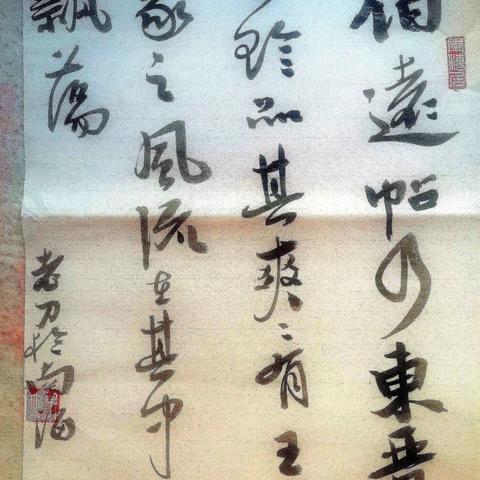 伯遠帖乃東晉
珍品其爽爽有王
家之風流在其中
飄蕩
老刀於南海